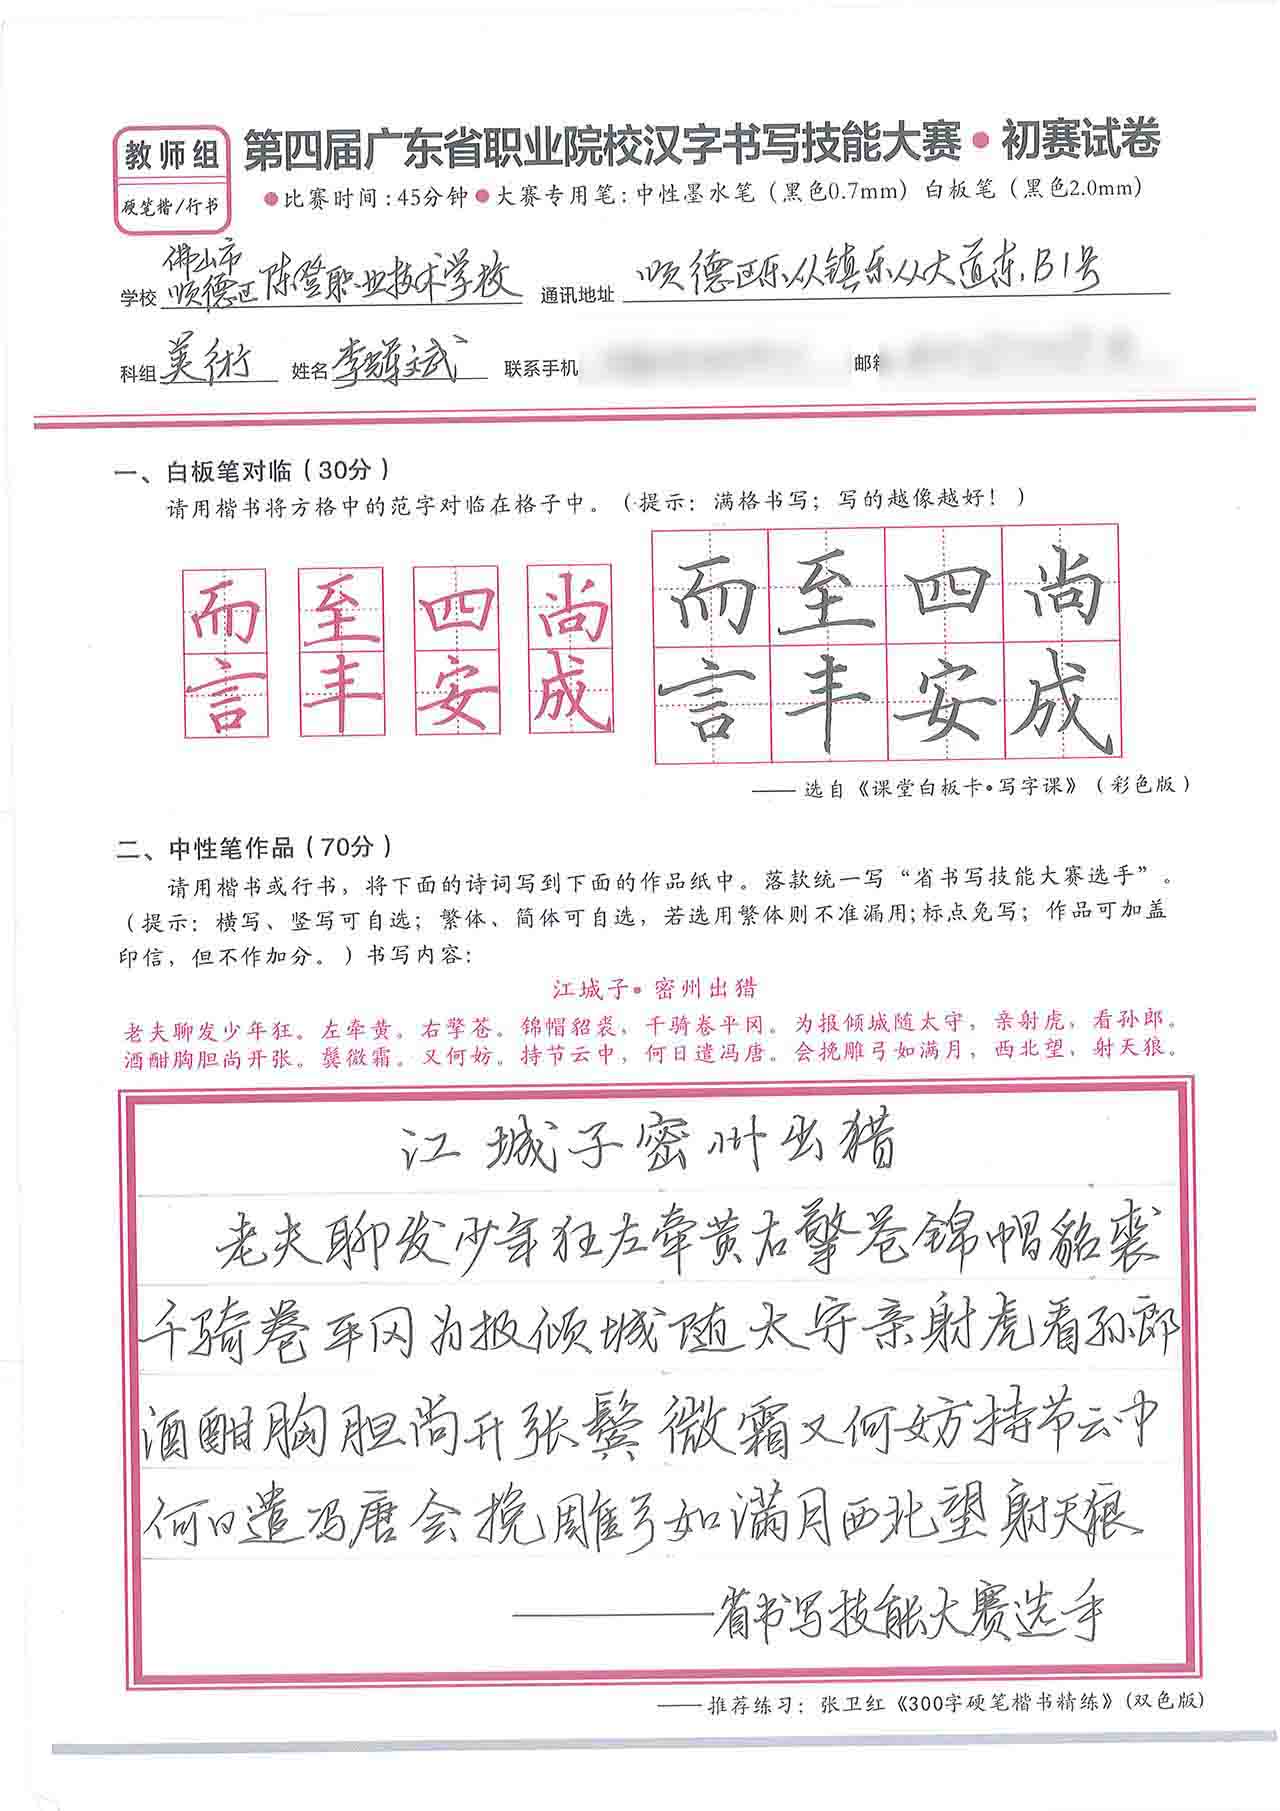 教师组
硬笔楷/行书
第四届广东省职业院校汉字书写技能大赛•初赛试卷
●比赛时间:45分钟●大赛专用笔:中性墨水笔（黑色0.7mm）白板笔（黑色2.0mm）
学校 佛山市顺德区陈登职业技术学校 通讯地址 顺德区乐从镇乐从大道东B1号
科组 美術 姓名 李辉斌 联系手机 邮箱
一、白板笔对临（30分）
请用楷书将方格中的范字对临在格子中。（提示：满格书写；写的越像越好！）
而 至 四 尚 而 至 四 尚
言 丰 安 成 言 丰 安 成
——选自《课堂白板卡•写字课》（彩色版）
二、中性笔作品（70分）
请用楷书或行书，将下面的诗词写到下面的作品纸中。落款统一写“省书写技能大赛选手”。
（提示：横写、竖写可自选；繁体、简体可自选，若选用繁体则不准漏用;标点免写；作品可加盖
印信，但不作加分。）书写内容：
江城子•密州出猎
老夫聊发少年狂。左牵黄。右擎苍。锦帽貂裘，千骑卷平冈。为报倾城随太守，亲射虎，看孙郎。
酒酣胸胆尚开张。鬓微霜。又何妨。持节云中，何日遣冯唐。会挽雕弓如满月，西北望，射天狼。
江城子密州出猎
老夫聊发少年狂左牵黄右擎苍锦帽貂裘
千骑卷平冈为报倾城随太守亲射虎看孙郎
酒酣胸胆尚开张鬓微霜又何妨持节云中
何日遣冯唐会挽雕弓如满月西北望射天狼
——省书写技能大赛选手
——推荐练习：张卫红《300字硬笔楷书精练》(双色版)